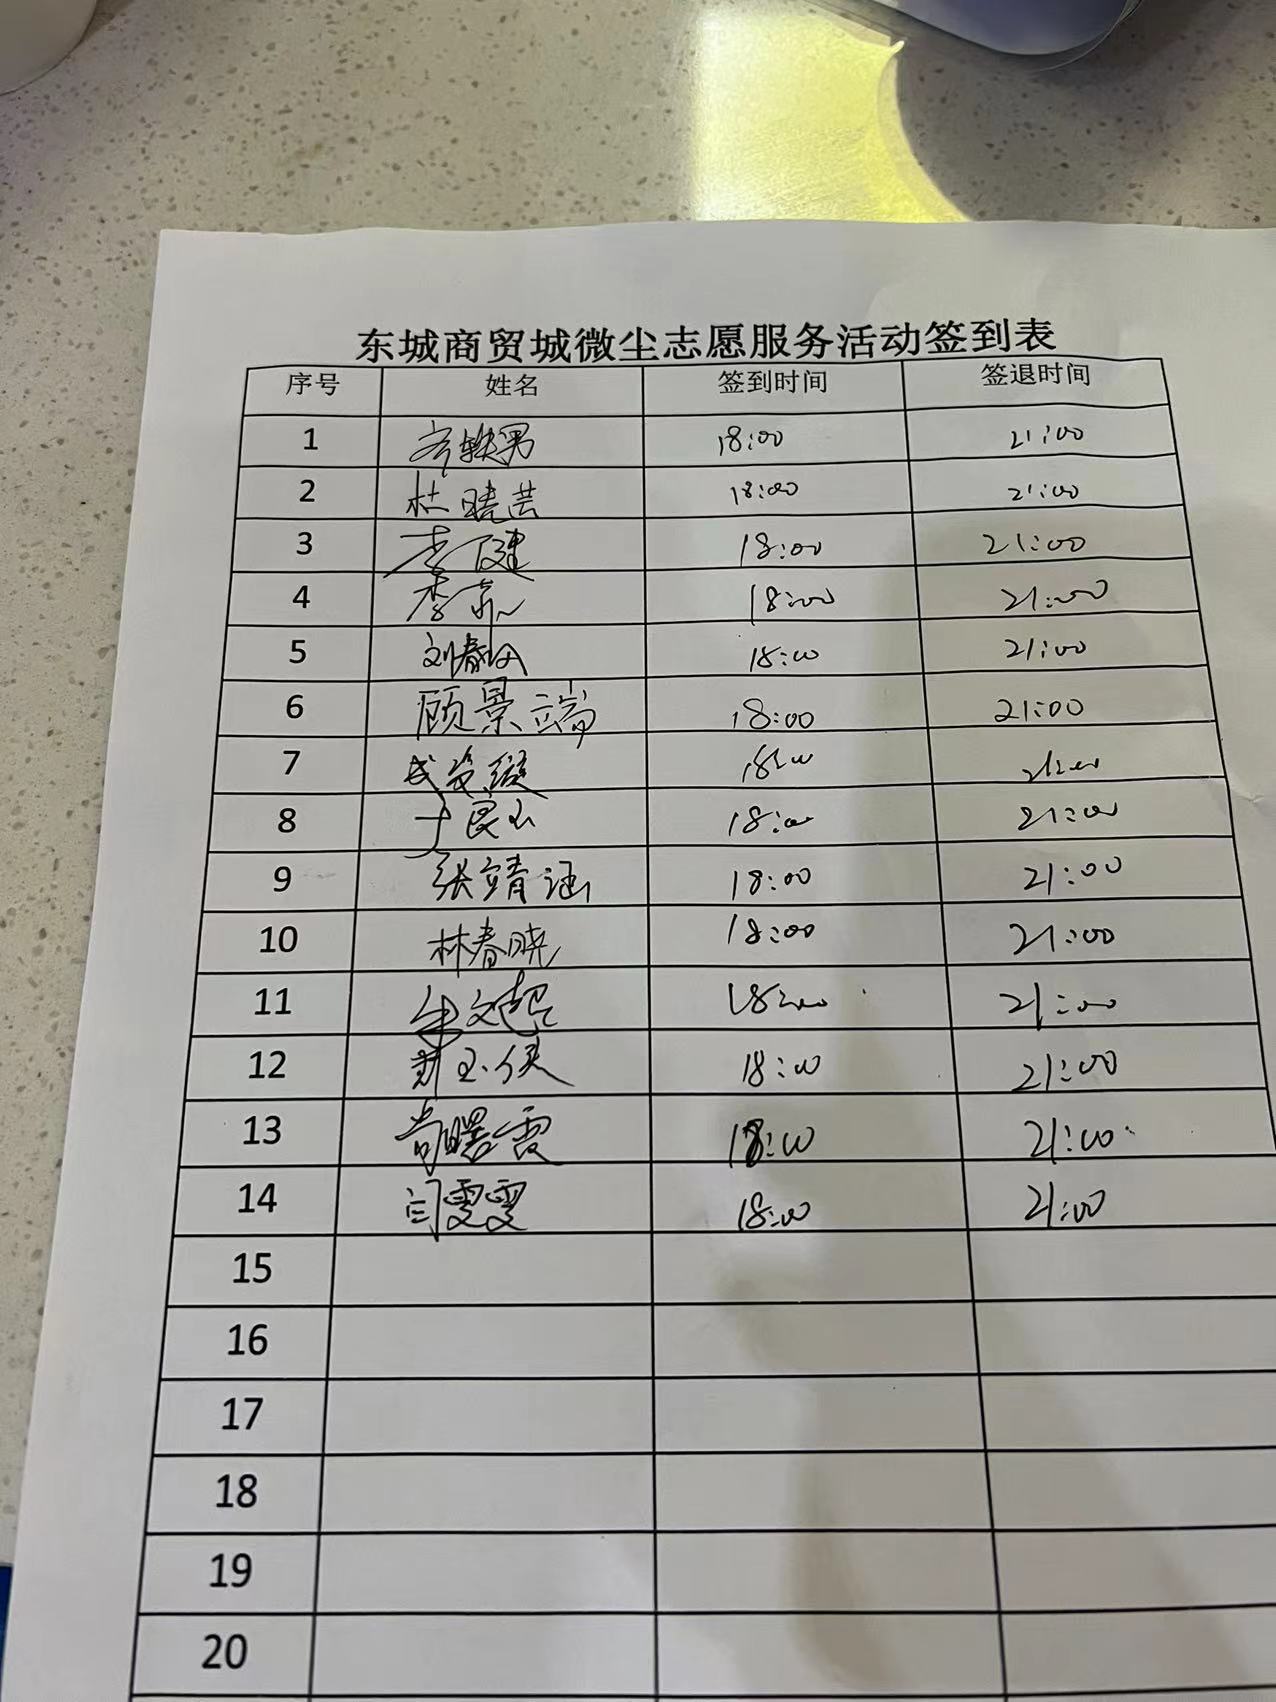 东城商贸城微尘志愿服务活动签到表
序号 姓名 签到时间 签退时间
1 18:00 21:00
2 杜晓芸 18:00 21:00
3 李健 18:00 21:00
4 李 18:00 21:00
5 刘春 18:00 21:00
6 顾景端 18:00 21:00
7 18:00 21:00
8 于良玉 18:00 21:00
9 张靖涵 18:00 21:00
10 林春晓 18:00 21:00
11 牟文起 18:00 21:00
12 玉侠 18:00 21:00
13 尚曙霞 18:00 21:00
14 闫雯雯 18:00 21:00
15
16
17
18
19
20